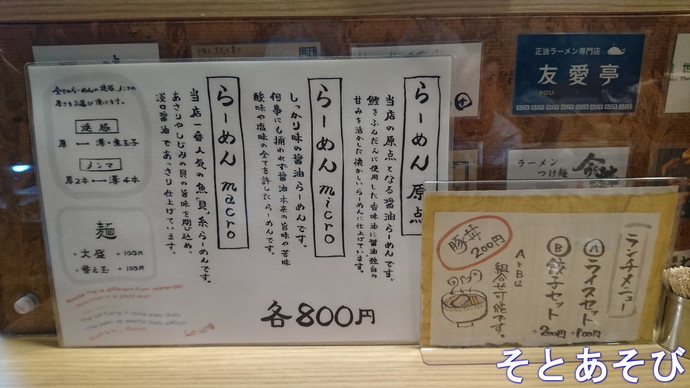 らーめん 原点
当店の原点となる醤油らーめんです。
鰹をふんだんに使用した旨味油に醤油独自の
甘みを活かした懐かしいらーめんに仕上げています。
らーめん micro
しっかり味の醤油らーめんです。
何事にも捕われず醤油本来の旨味や苦味
酸味や塩味の全てを許したらーめんです。
らーめん macro
当店一番人気の魚貝系らーめんです。
あさりやしじみの貝の旨味を閉じ込め、
淡口醤油であっさり仕上げています。
各800円
メンマ
厚2本 ⟷ 薄4本
麺
・大盛 +100円
・替え玉 +100円
正油ラーメン専門店
友愛亭
ラーメン
つけ麺
ランチメニュー
Ⓐライスセット +100円
Ⓑ餃子セット +200円
AとBは
組合せ可能です。
豚丼
200円
そとあそび